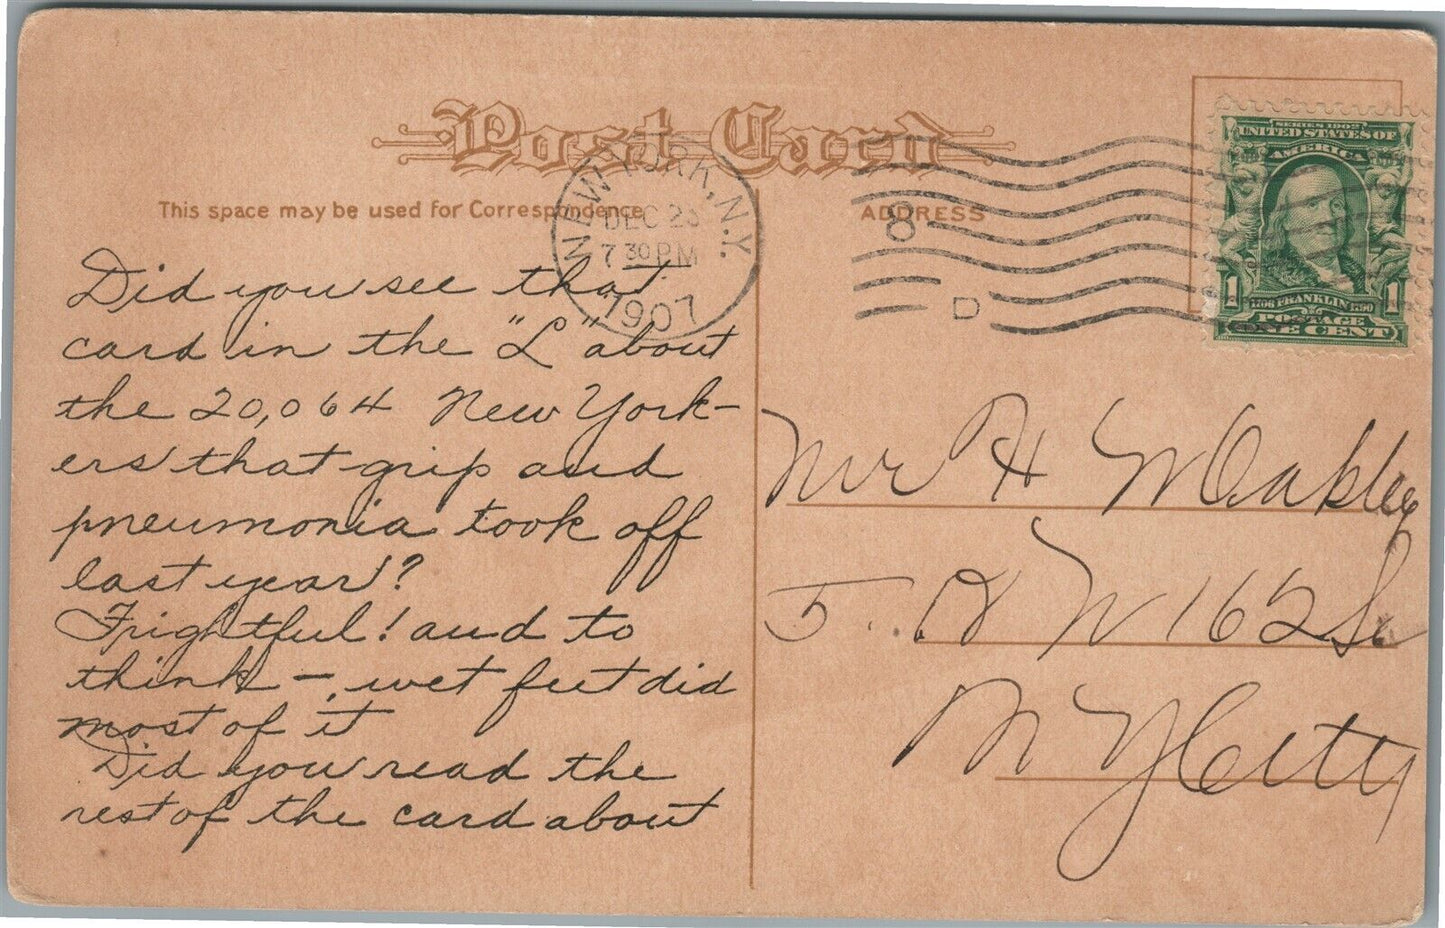 Post Card
This space may be used for Correspondence
ADDRESS
NEW YORK, N.Y.
DEC 23
7 30 PM
1907
8
D
SERIES 1902
UNITED STATES OF
AMERICA
1706 FRANKLIN 1790
1 1
POSTAGE
ONE CENT
Did you see that
card in the "L" about
the 20,064 New York-
ers that grip and
pneumonia took off
last year?
Frightful! and to
think -, wet feet did
most of it
Did you read the
rest of the card about
Mr H W Oakley
W 162 St
N Y City